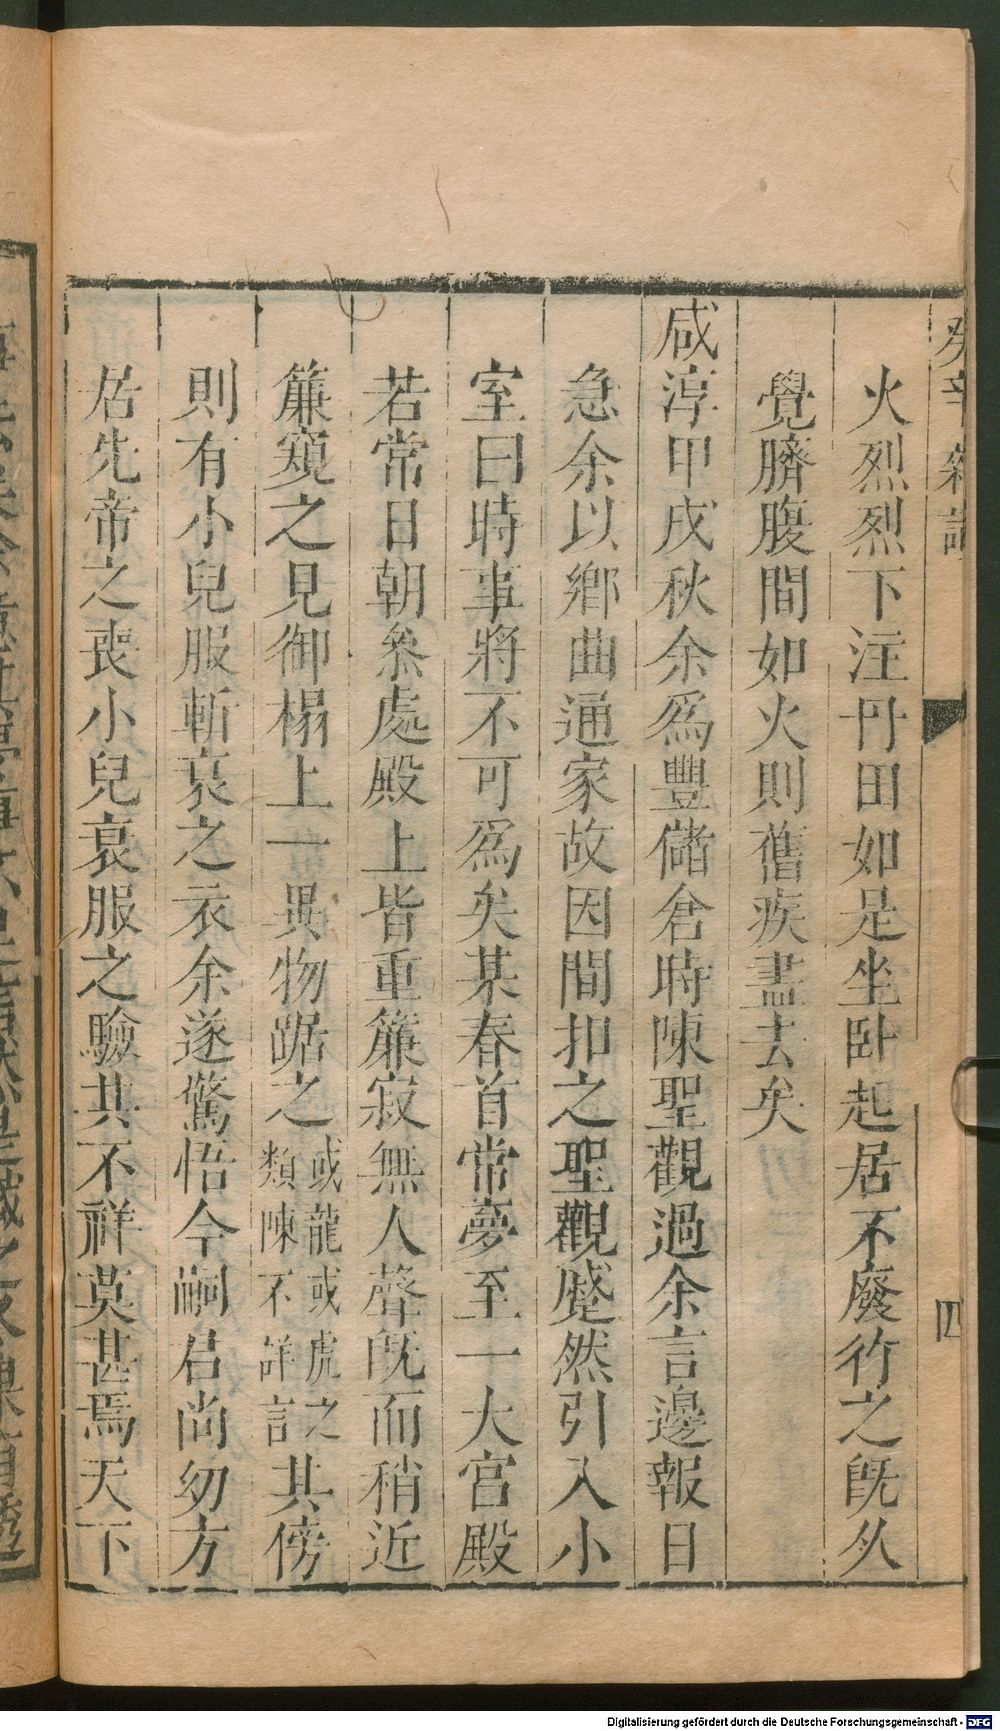 癸辛雜識
四
火烈烈下注丹田如是坐臥起居不廢行之旣久
覺臍腹間如火則舊疾盡去矣
咸淳甲戌秋余爲豐儲倉時陳聖觀過余言邊報日
急余以鄉曲通家故因間扣之聖觀蹙然引入小
室曰時事將不可爲矣某春首常夢至一大宮殿
若常日朝叅處殿上皆重簾寂無人聲旣而稍近
簾窺之見御榻上一異物踞之或龍或虎之類陳不詳言其傍
則有小兒服斬衰之衣余遂驚悟今嗣君尚幼方
居先帝之喪小兒衰服之驗其不祥莫甚焉天下
Digitalisierung gefördert durch die Deutsche Forschungsgemeinschaft - DFG